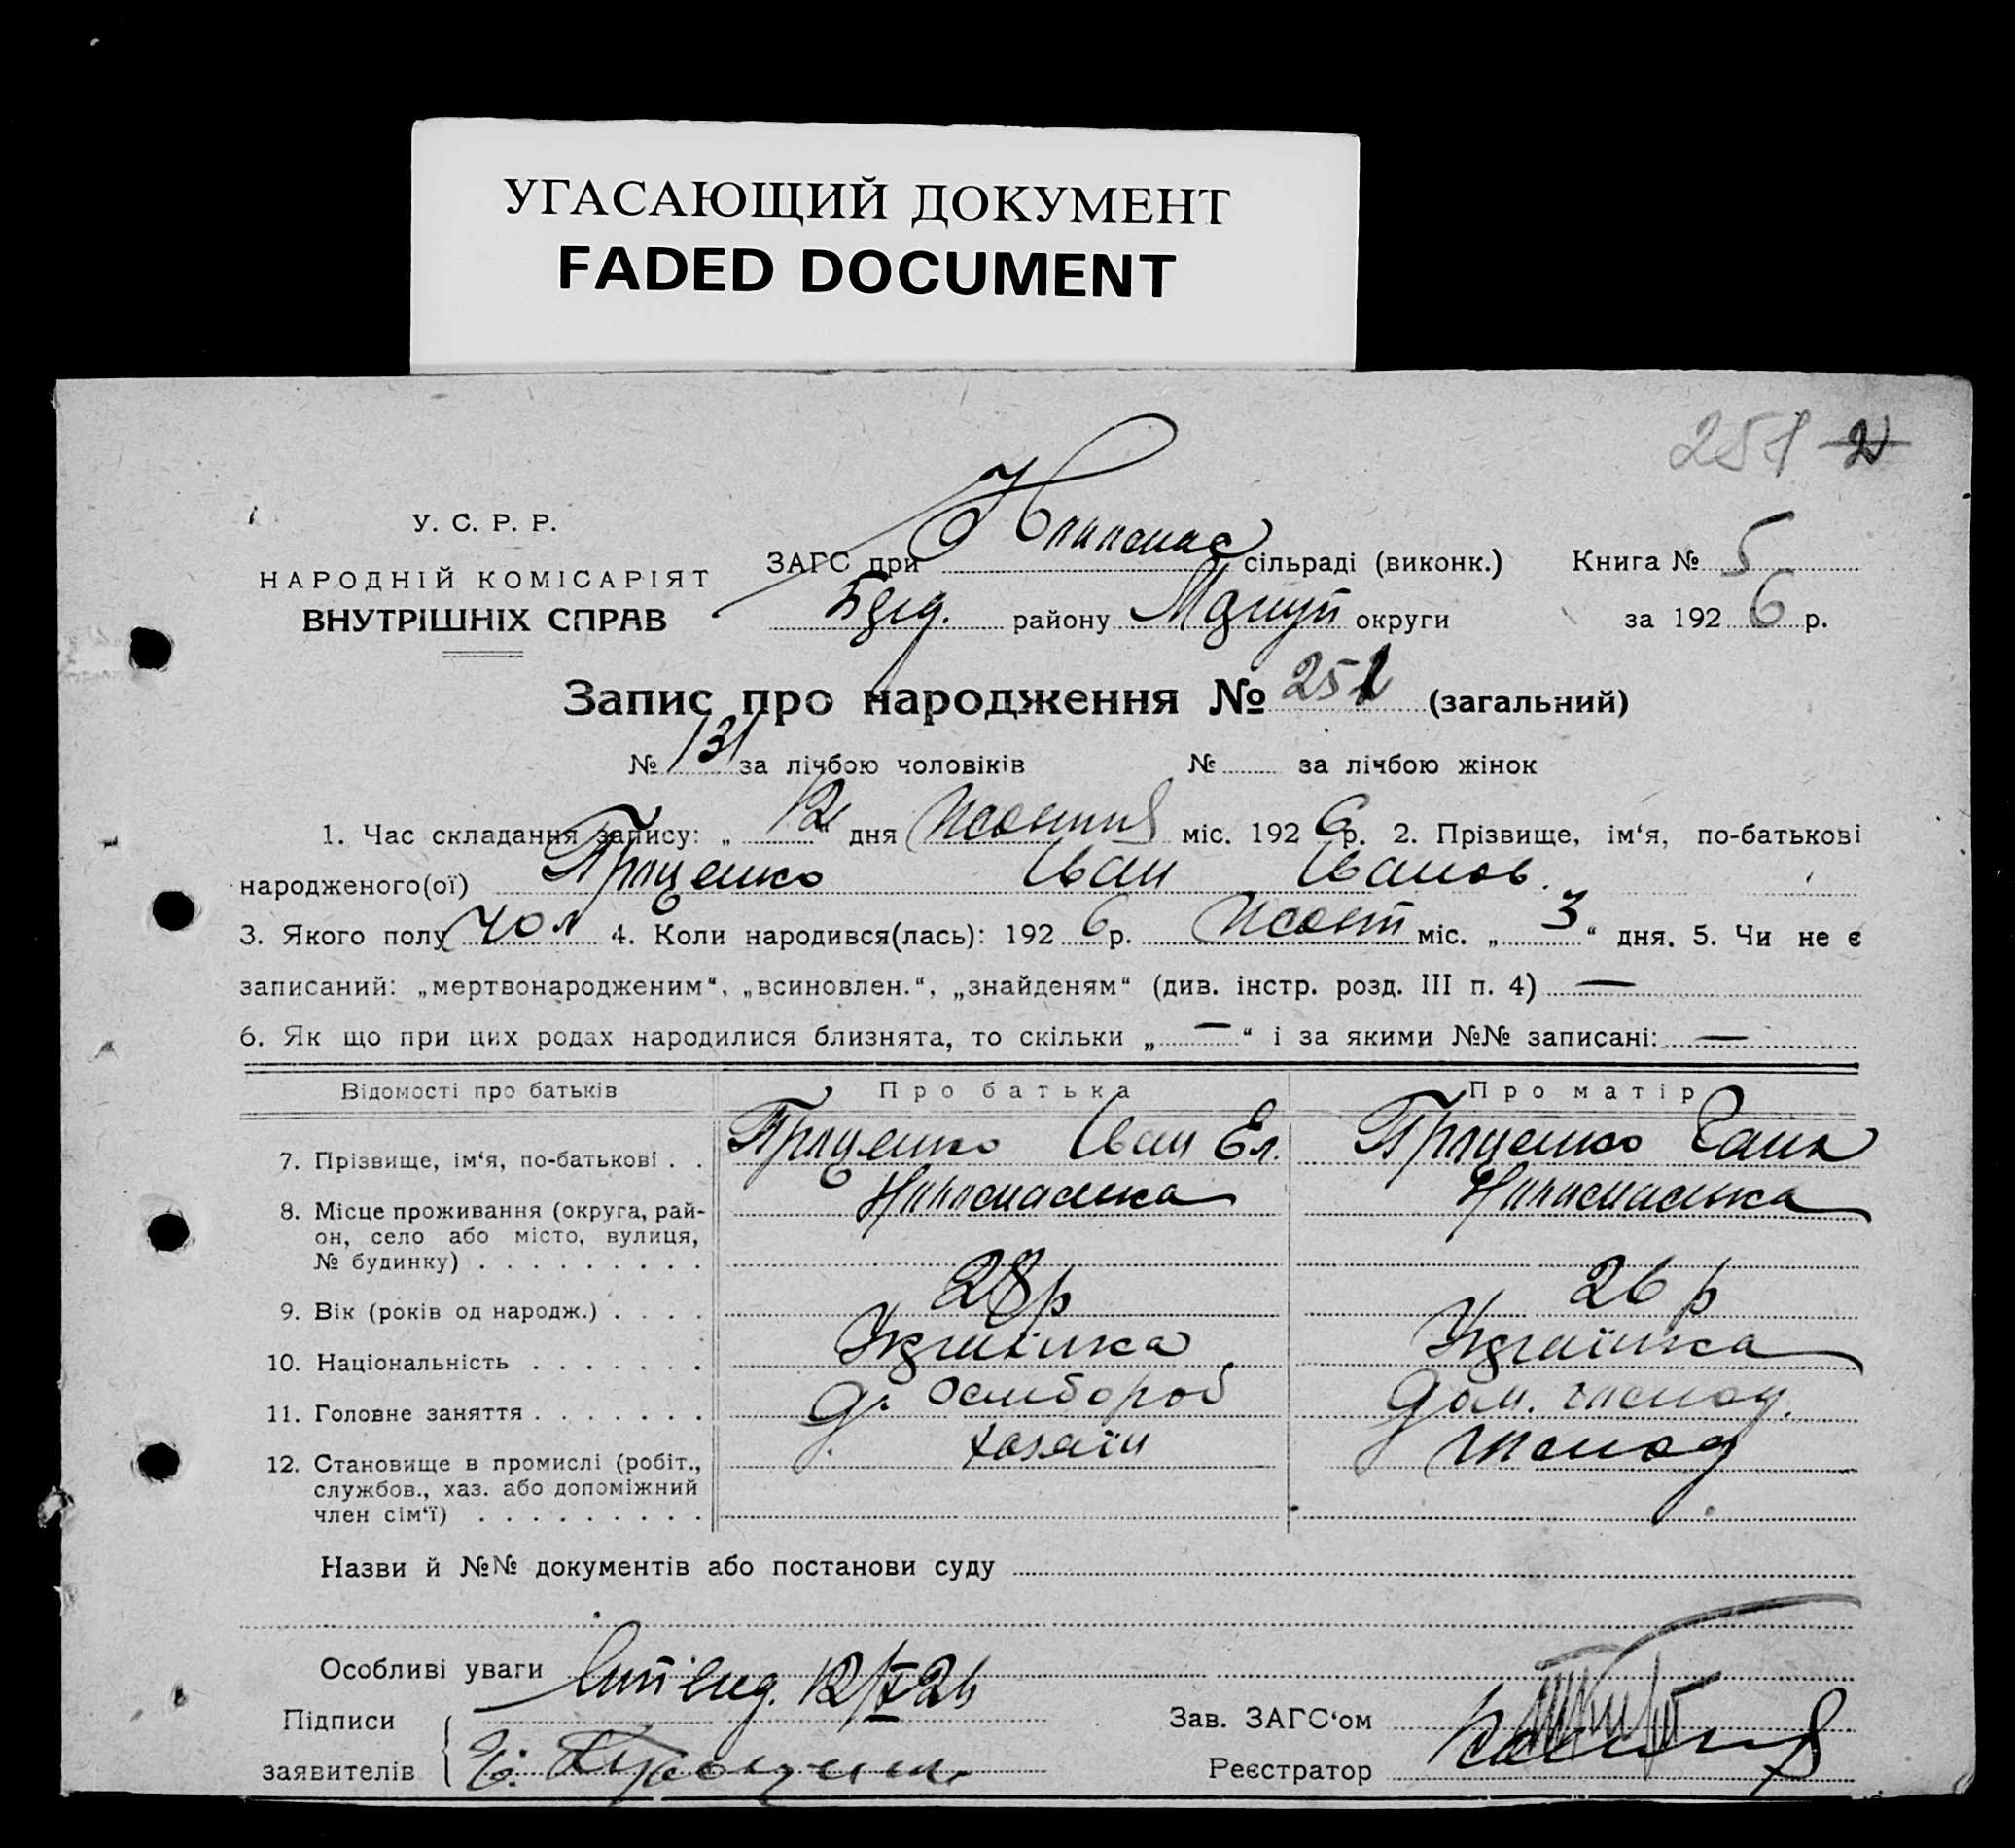 УГАСАЮЩИЙ ДОКУМЕНТ
FADED DOCUMENT
251 2
У. С. Р. Р.
НАРОДНІЙ КОМІСАРІЯТ
ВНУТРІШНІХ СПРАВ
ЗАГС при сільраді (виконк.) Книга № 5
району округи за 1926 р.
Запис про народження № 251 (загальний)
№ 131 за лічбою чоловіків № за лічбою жінок
1. Час складання запису: „ 12 “ дня Жовтня міс. 1926 р. 2. Прізвище, ім‘я, по-батькові
народженого(ої) Проценко Іван Іванов.
3. Якого полу чол 4. Коли народився(лась): 1926 р. Жовт міс. „ 3 “ дня. 5. Чи не є
записаний: „мертвонародженим“, „всиновлен.“, „знайденям“ (див. інстр. розд. III п. 4) —
6. Як що при цих родах народилися близнята, то скільки „ — “ і за якими №№ записані: —
Відомості про батьків Про батька Про матір
7. Прізвище, ім‘я, по-батькові . . Проценко Іван Ел. Проценко Ганн
8. Місце проживання (округа, рай-
он, село або місто, вулиця,
№ будинку) . . . . . . . . .
9. Вік (років од народж.) . . . . 28 р 26 р
10. Національність . . . . . . . Українка Українка
11. Головне заняття . . . . . . . хлібороб Дом. господ.
12. Становище в промислі (робіт., хазаїн
службов., хаз. або допоміжний
член сім‘ї) . . . . . . . . .
Назви й №№ документів або постанови суду
Особливі уваги 12/X 26
Підписи
заявителів
Зав. ЗАГС‘ом
Реєстратор